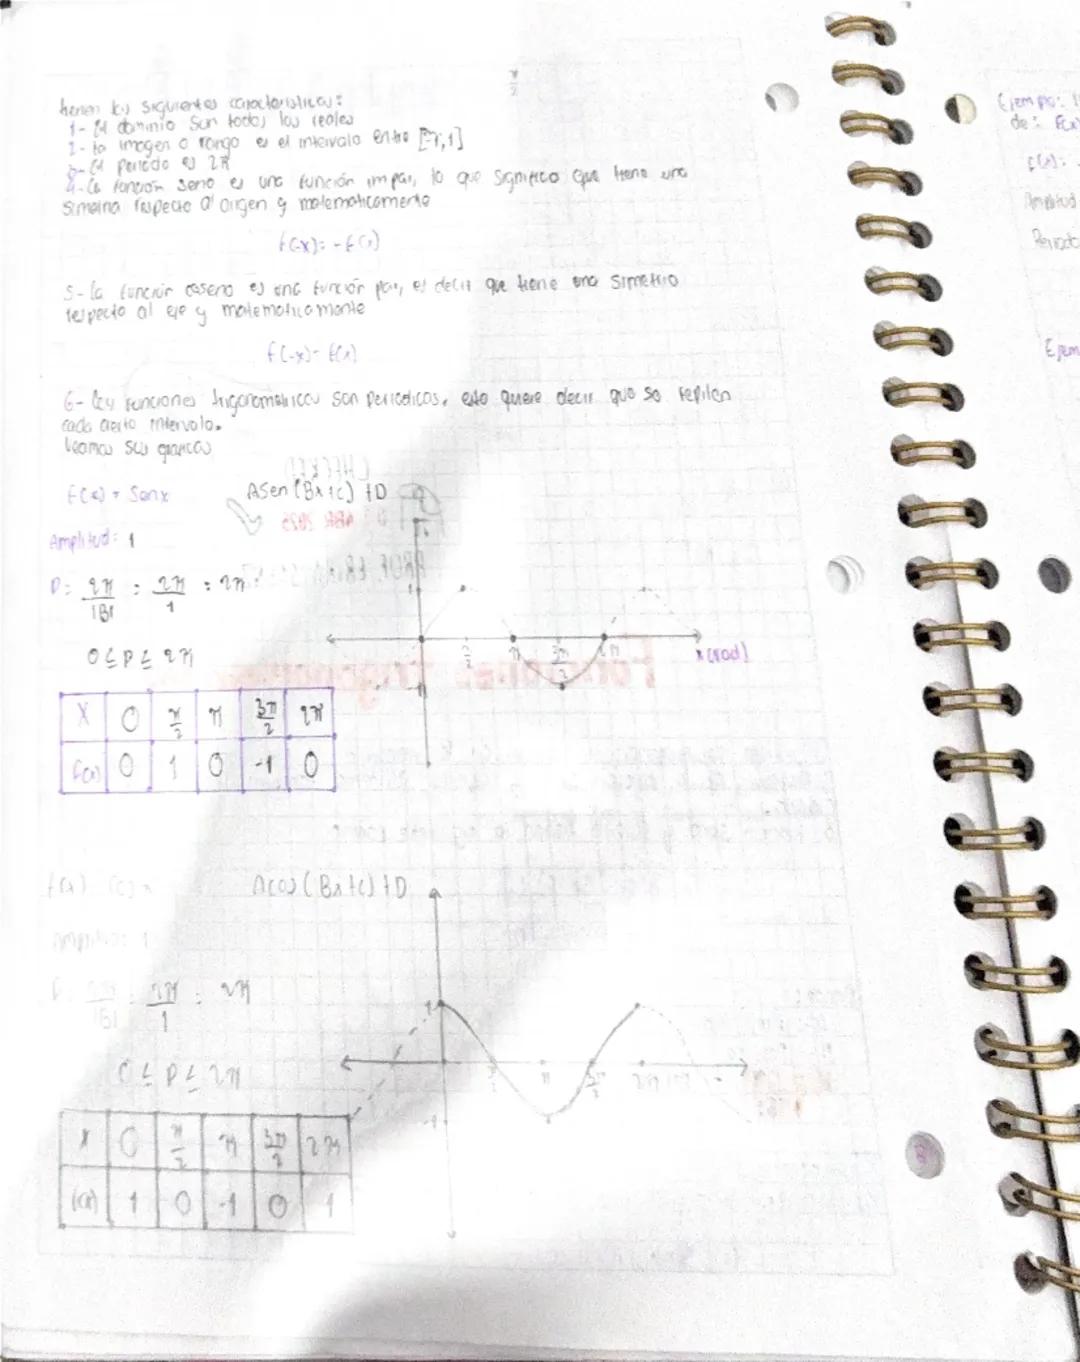 tienen las siguientes características:
1- El dominio son todos los reales
2- la imagen o rango es el intervalo entre [-1,1]
3- El periodo es 2π
4- La función seno es una función impar, lo que significa que tiene una
simetria respecto al origen y matematicamente
f(-x) = -f(x)
5- La función coseno es una función par, es decir que tiene una simetria
respecto al eje y matematicamente
f(-x) - f(x)
6- Las funciones trigonometricas son periodicas, esto quiere decir que se repiten
cada cierto intervalo.
Veamos sus graficas
f(x) = Senx ASen(Bx+c)+D
Amplitud: 1
P: 2π/|B| : 2π/1 : 2π
0 ≤ P ≤ 2π
x (rad)
X 0 π/2 π 3π/2 2π
f(x) 0 1 0 -1 0
Acos(Bx+c)+D
2π/|B| : 2π/1 : 2π
0 ≤ P ≤ 2π
X 0 π/2 π 3π/2 2π
f(x) 1 0 -1 0 1
de: f(x)
f(x):
Amplitud
Periodo